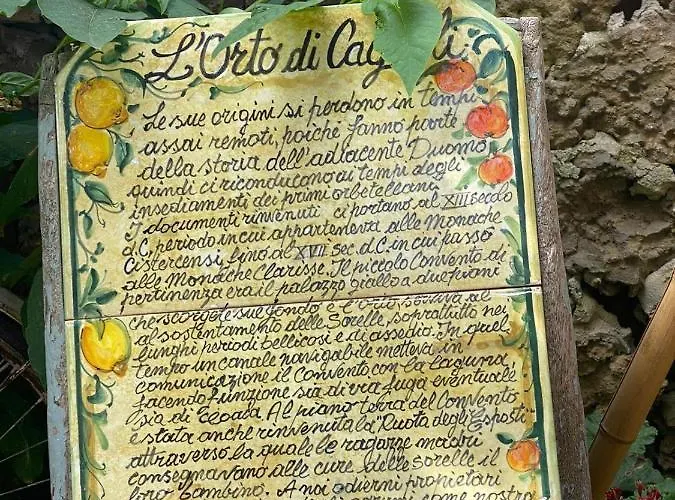 L'Orto di
Le sue origini si perdono in tempi
assai remoti, poiché fanno parte
della storia dell'adiacente Duomo
quindi ci riconducono ai tempi degli
insediamenti dei primi orbetellani
I documenti rinvenuti ci portano al XIII secolo
d.C. periodo in cui apparteneva alle Monache
Cistercensi fino al XVII sec. d.C. in cui passò
alle Monache Clarisse. Il piccolo Convento di
pertinenza era il palazzo giallo a due piani
che scorgete sul fondo e l'Orto serviva al
al sostentamento delle Sorelle, soprattutto nei
lunghi periodi bellicosi e di assedio. In quel
tempo un canale navigabile metteva in
comunicazione il Convento con la laguna
facendo funzione sia di via fuga eventuale
sia di Al piano terra del Convento
è stata anche rinvenuta la "Ruota degli Esposti"
attraverso la quale le ragazze madri
consegnavano alle cure delle sorelle il
loro bambino. A noi odierni proprietari